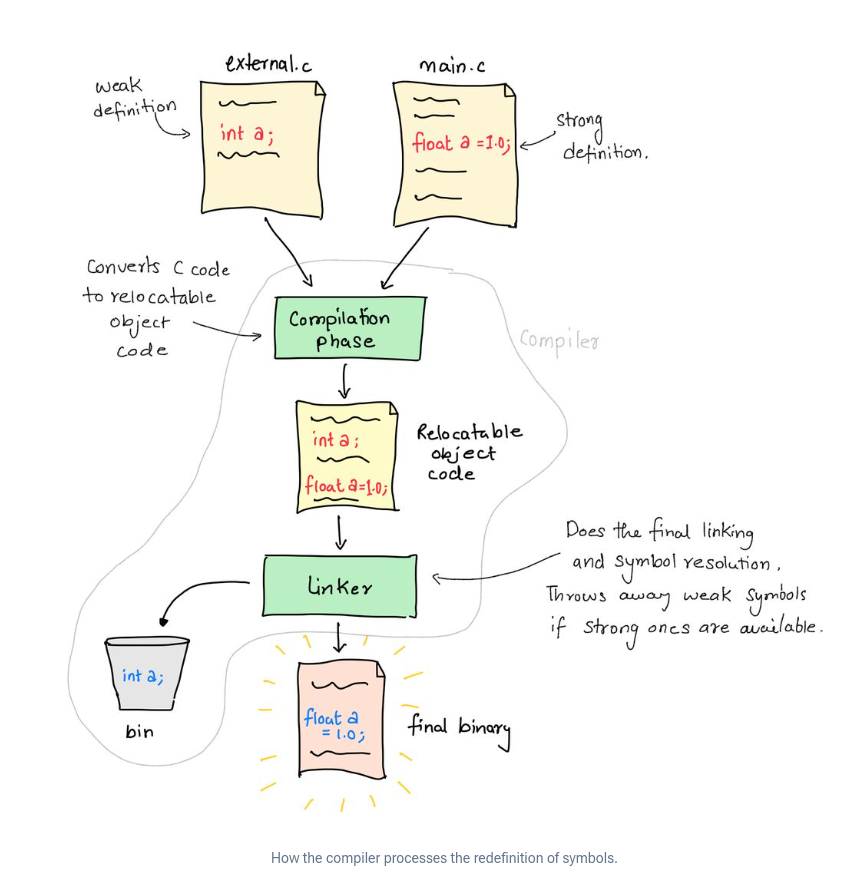 external.c
main.c
weak
definition
int a;
float a =1.0;
strong
definition.
Converts C code
to relocatable
object
code
Compilation
phase
Compiler
int a;
float a=1.0;
Relocatable
object
code
Linker
Does the final linking
and symbol resolution.
Throws away weak symbols
if strong ones are available.
int a;
bin
float a
= 1.0;
final binary
How the compiler processes the redefinition of symbols.